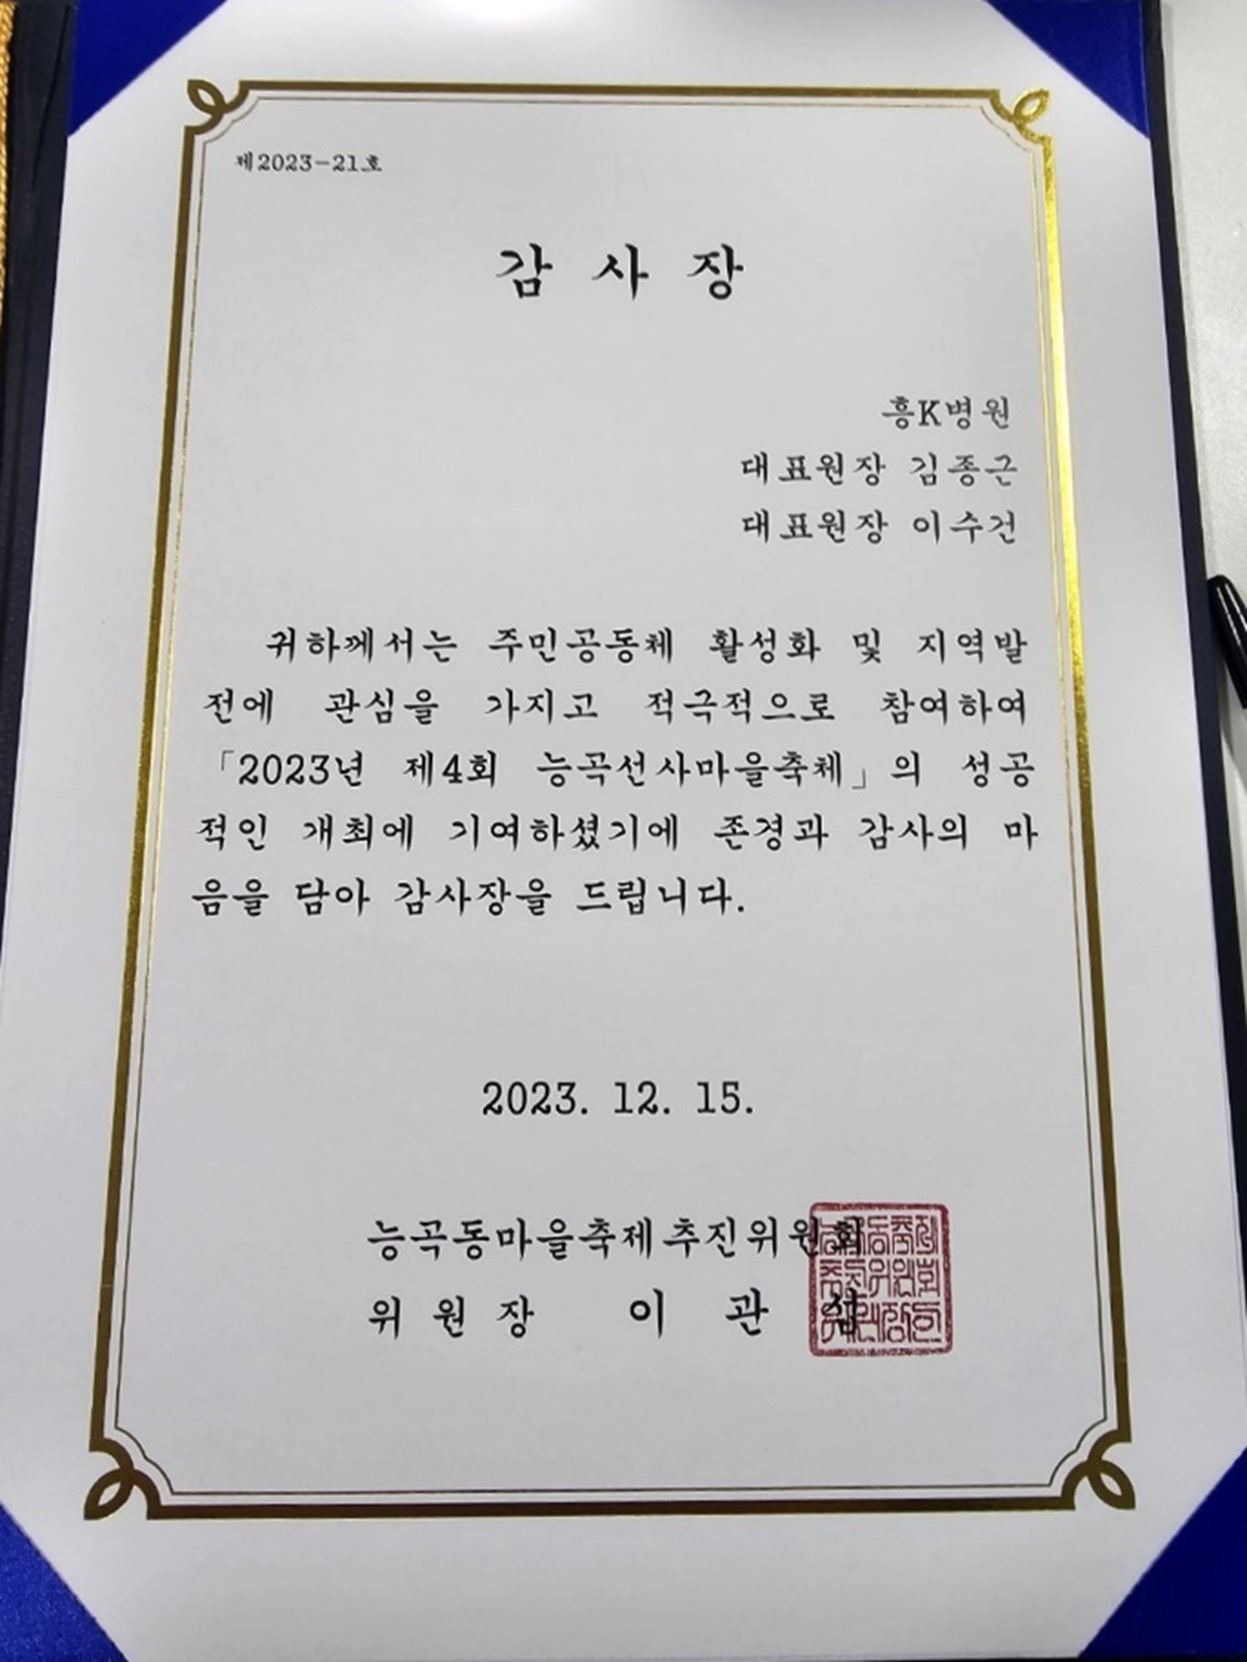 제2023-21호
감 사 장
흥K병원
대표원장 김종근
대표원장 이수건
귀하께서는 주민공동체 활성화 및 지역발
전에 관심을 가지고 적극적으로 참여하여
「2023년 제4회 능곡선사마을축체」의 성공
적인 개최에 기여하셨기에 존경과 감사의 마
음을 담아 감사장을 드립니다.
2023. 12. 15.
능곡동마을축제추진위원회
위 원 장 이 관 섭